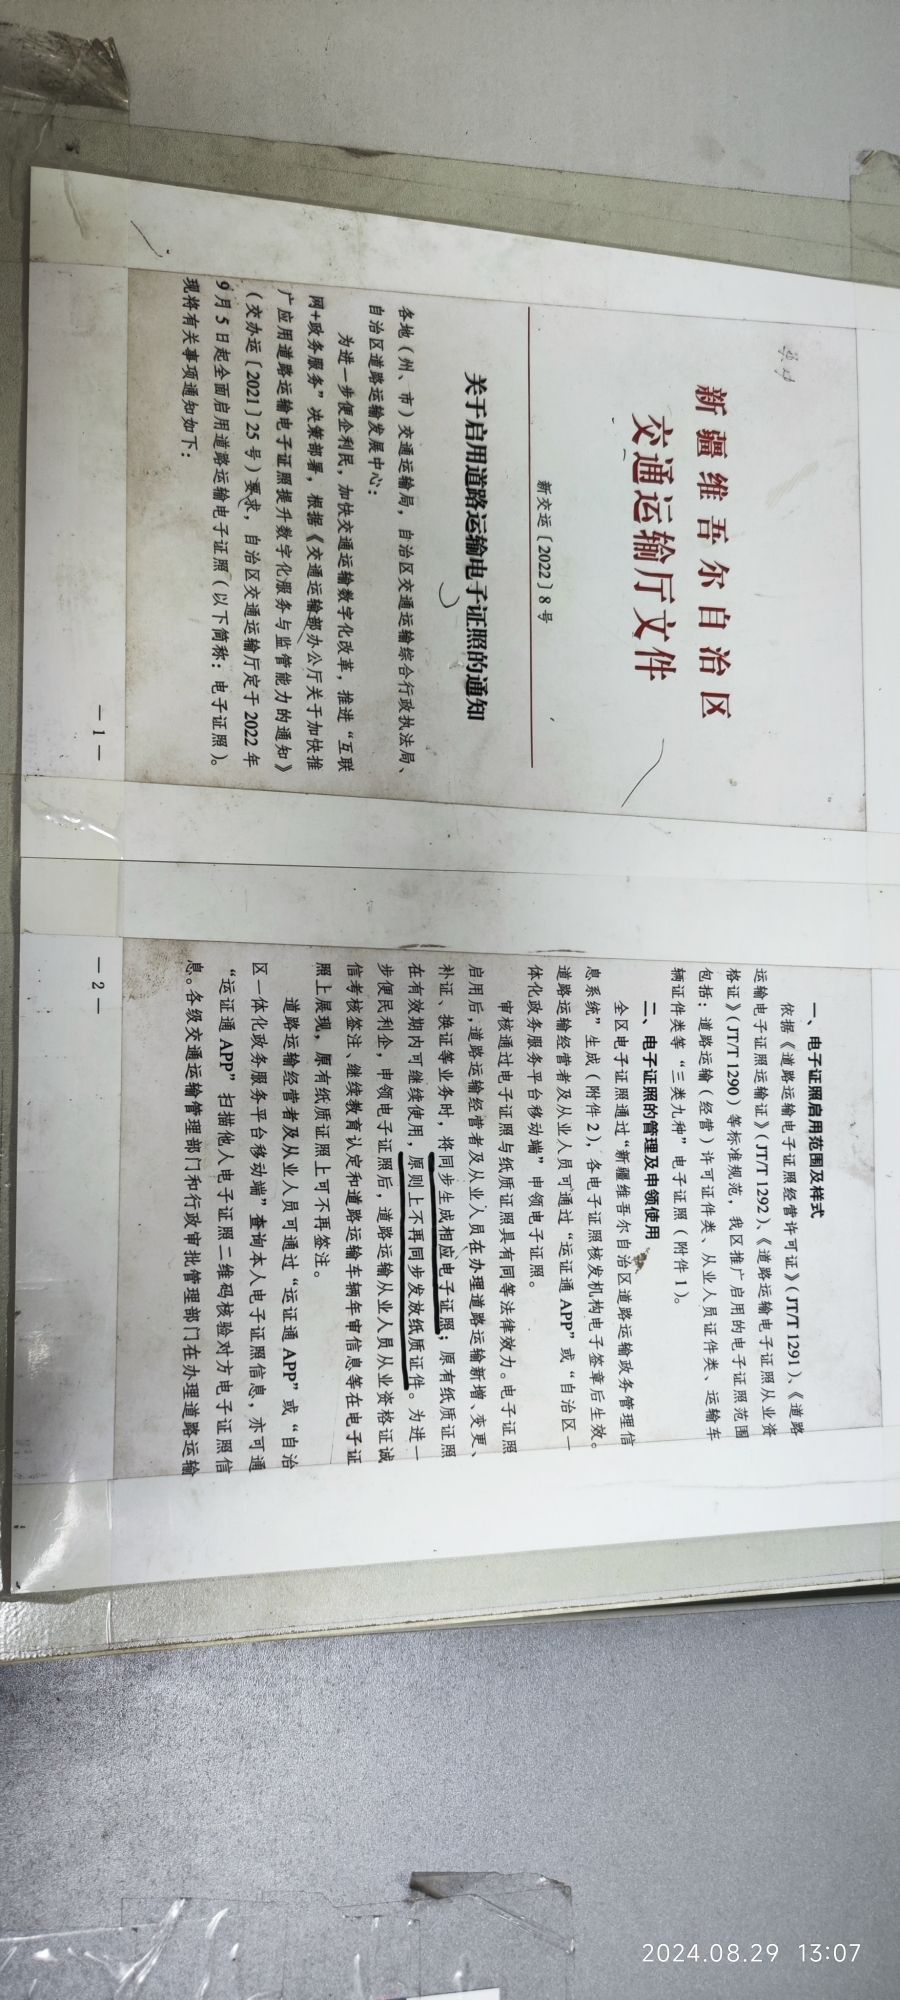 新疆维吾尔自治区
交通运输厅文件
新交运〔2022〕8号
关于启用道路运输电子证照的通知
各地（州、市）交通运输局，自治区交通运输综合行政执法局、
自治区道路运输发展中心：
为进一步便企利民，加快交通运输数字化改革，推进“互联
网+政务服务”决策部署，根据《交通运输部办公厅关于加快推
广应用道路运输电子证照提升数字化服务与监管能力的通知》
（交办运〔2021〕25号）要求，自治区交通运输厅定于2022年
9月5日起全面启用道路运输电子证照（以下简称：电子证照）。
现将有关事项通知如下：
—1—
一、电子证照启用范围及样式
依据《道路运输电子证照经营许可证》（JT/T 1291）、《道路
运输电子证照运输证》（JT/T 1292）、《道路运输电子证照从业资
格证》（JT/T 1290）等标准规范，我区推广启用的电子证照范围
包括：道路运输（经营）许可证件类、从业人员证件类、运输车
辆证件类等“三类九种”电子证照（附件1）。
二、电子证照的管理及申领使用
全区电子证照通过“新疆维吾尔自治区道路运输政务管理信
息系统”生成（附件2），各电子证照核发机构电子签章后生效。
道路运输经营者及从业人员可通过“运证通APP”或“自治区一
体化政务服务平台移动端”申领电子证照。
审核通过电子证照与纸质证照具有同等法律效力。电子证照
启用后，道路运输经营者及从业人员在办理道路运输新增、变更、
补证、换证等业务时，将同步生成相应电子证照；原有纸质证照
在有效期内可继续使用，原则上不再同步发放纸质证件。为进一
步便民利企，申领电子证照后，道路运输从业人员从业资格证诚
信考核签注、继续教育认定和道路运输车辆年审信息等在电子证
照上展现，原有纸质证照上可不再签注。
道路运输经营者及从业人员可通过“运证通APP”或“自治
区一体化政务服务平台移动端”查询本人电子证照信息，亦可通
“运证通APP”扫描他人电子证照二维码核验对方电子证照信
息。各级交通运输管理部门和行政审批管理部门在办理道路运输
—2—
2024.08.29 13:07